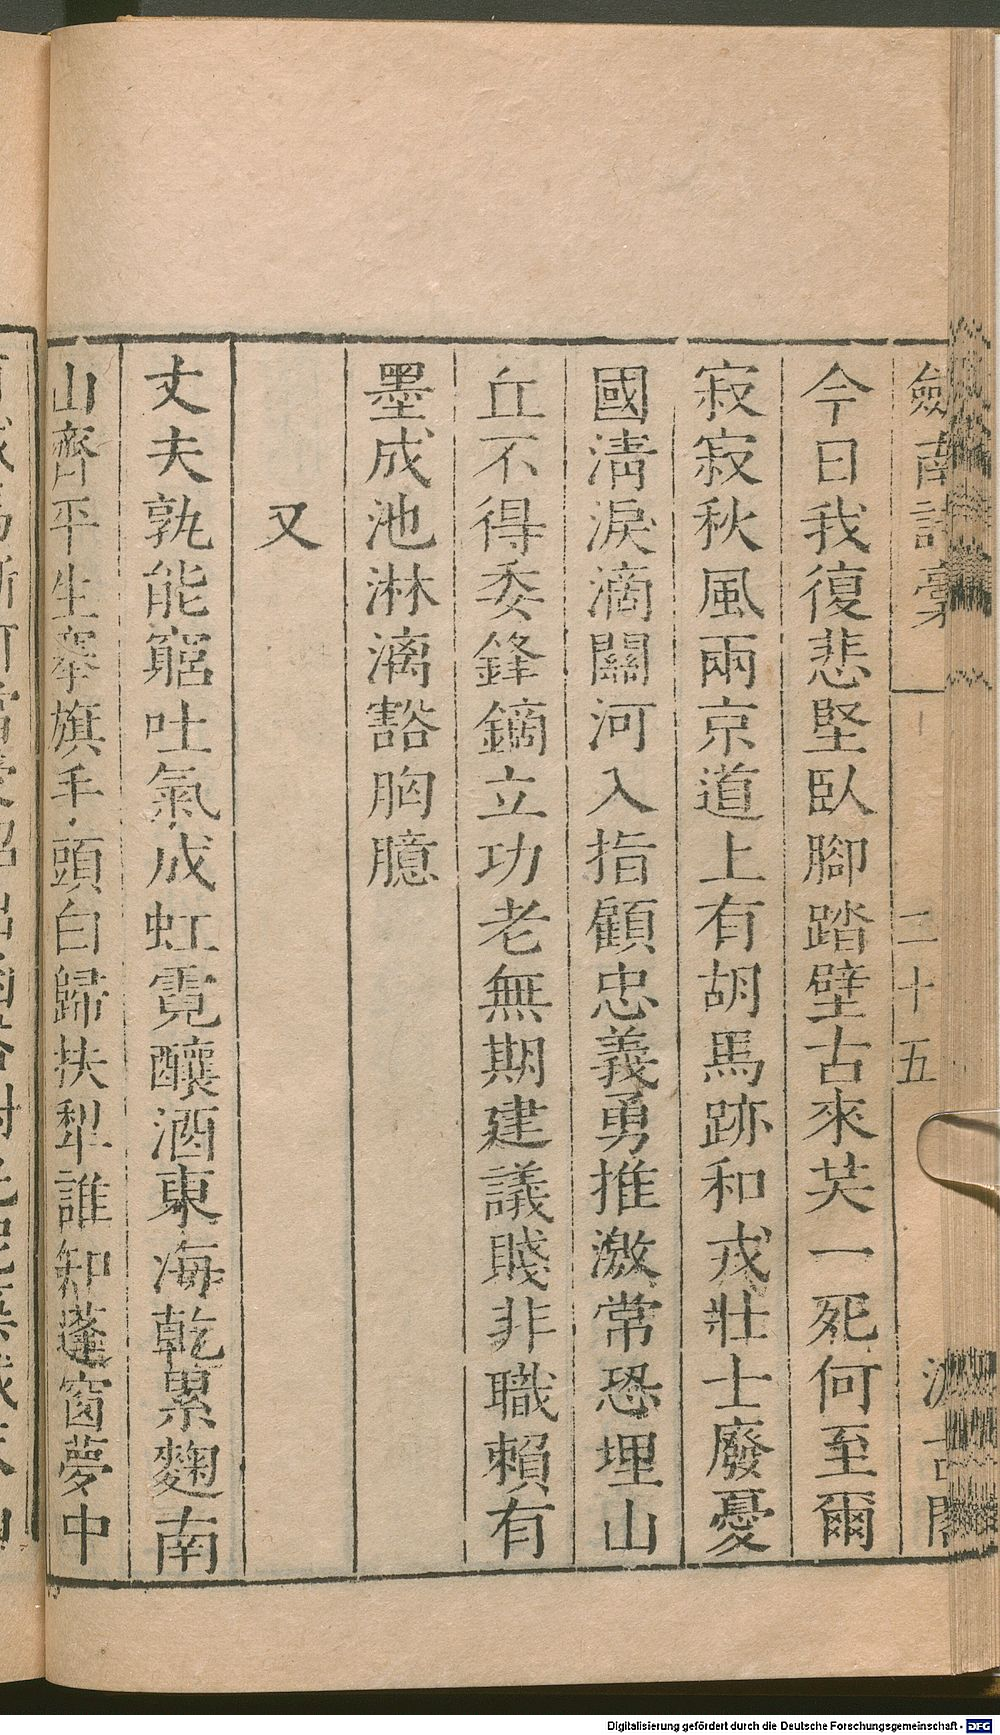 劍南詩稾
二十五
汲古閣
今日我復悲堅臥腳踏壁古來共一死何至爾
寂寂秋風兩京道上有胡馬跡和戎壯士廢憂
國淸淚滴關河入指顧忠義勇推激常恐埋山
丘不得委鋒鏑立功老無期建議賤非職賴有
墨成池淋漓豁胸臆
又
丈夫孰能窮吐氣成虹霓釀酒東海乾累麴南
山齊平生搴旗手頭白歸扶犁誰知蓬窗夢中
Digitalisierung gefördert durch die Deutsche Forschungsgemeinschaft - DFG